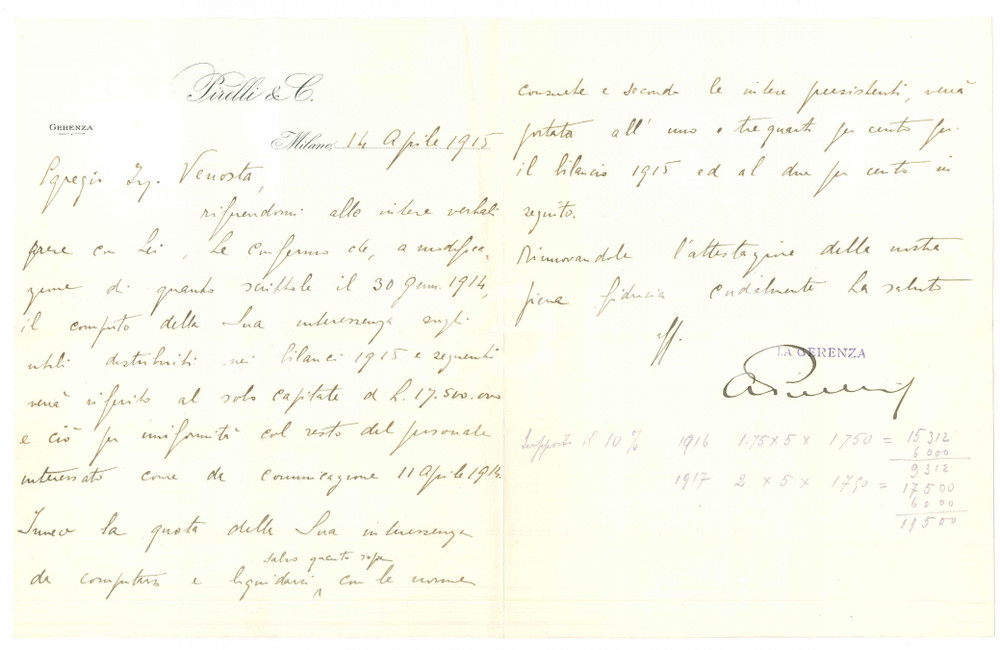 Pirelli & C.
GERENZA
Milano, 14 Aprile 1915
Egregio Ing. Venosta,
riferendomi alle intese verbali
prese con Lei, Le confermo che, a modifica-
zione di quanto scrittole il 30 Genn. 1914,
il computo della Sua interessenza sugli
utili distribuiti nei bilanci 1915 e seguenti
verrà riferito al solo capitale di L. 17.500.000
e ciò per uniformità col resto del personale
interessato come da comunicazione 11 Aprile 1914.
Invece la quota della Sua interessenza
salvo quanto sopra
da computarsi e liquidarsi, con le norme
consuete e secondo le intese preesistenti, verrà
portata all' uno e tre quarti per cento per
il bilancio 1915 ed al due per cento in
seguito.
Rinnovandole l'attestazione della nostra
piena fiducia cordialmente La saluto
aff.
LA GERENZA
Supposto il 10 % 1916 1.75 x 5 x 1750 = 15312
6000
9312
1917 2 x 5 x 1750 = 17500
6000
11500